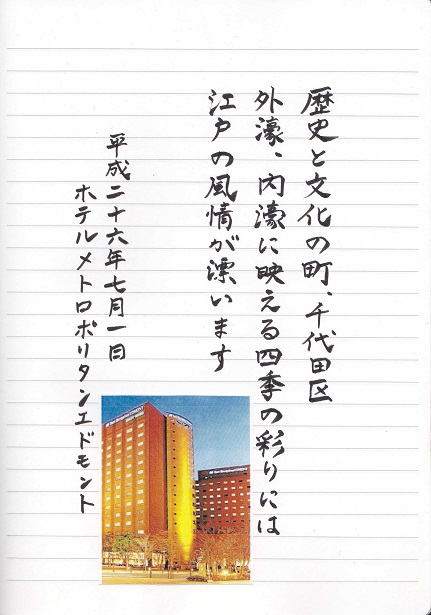 歴史と文化の町、千代田区
外濠、内濠に映える四季の彩りには
江戸の風情が漂います
平成二十六年七月一日
ホテルメトロポリタンエドモント